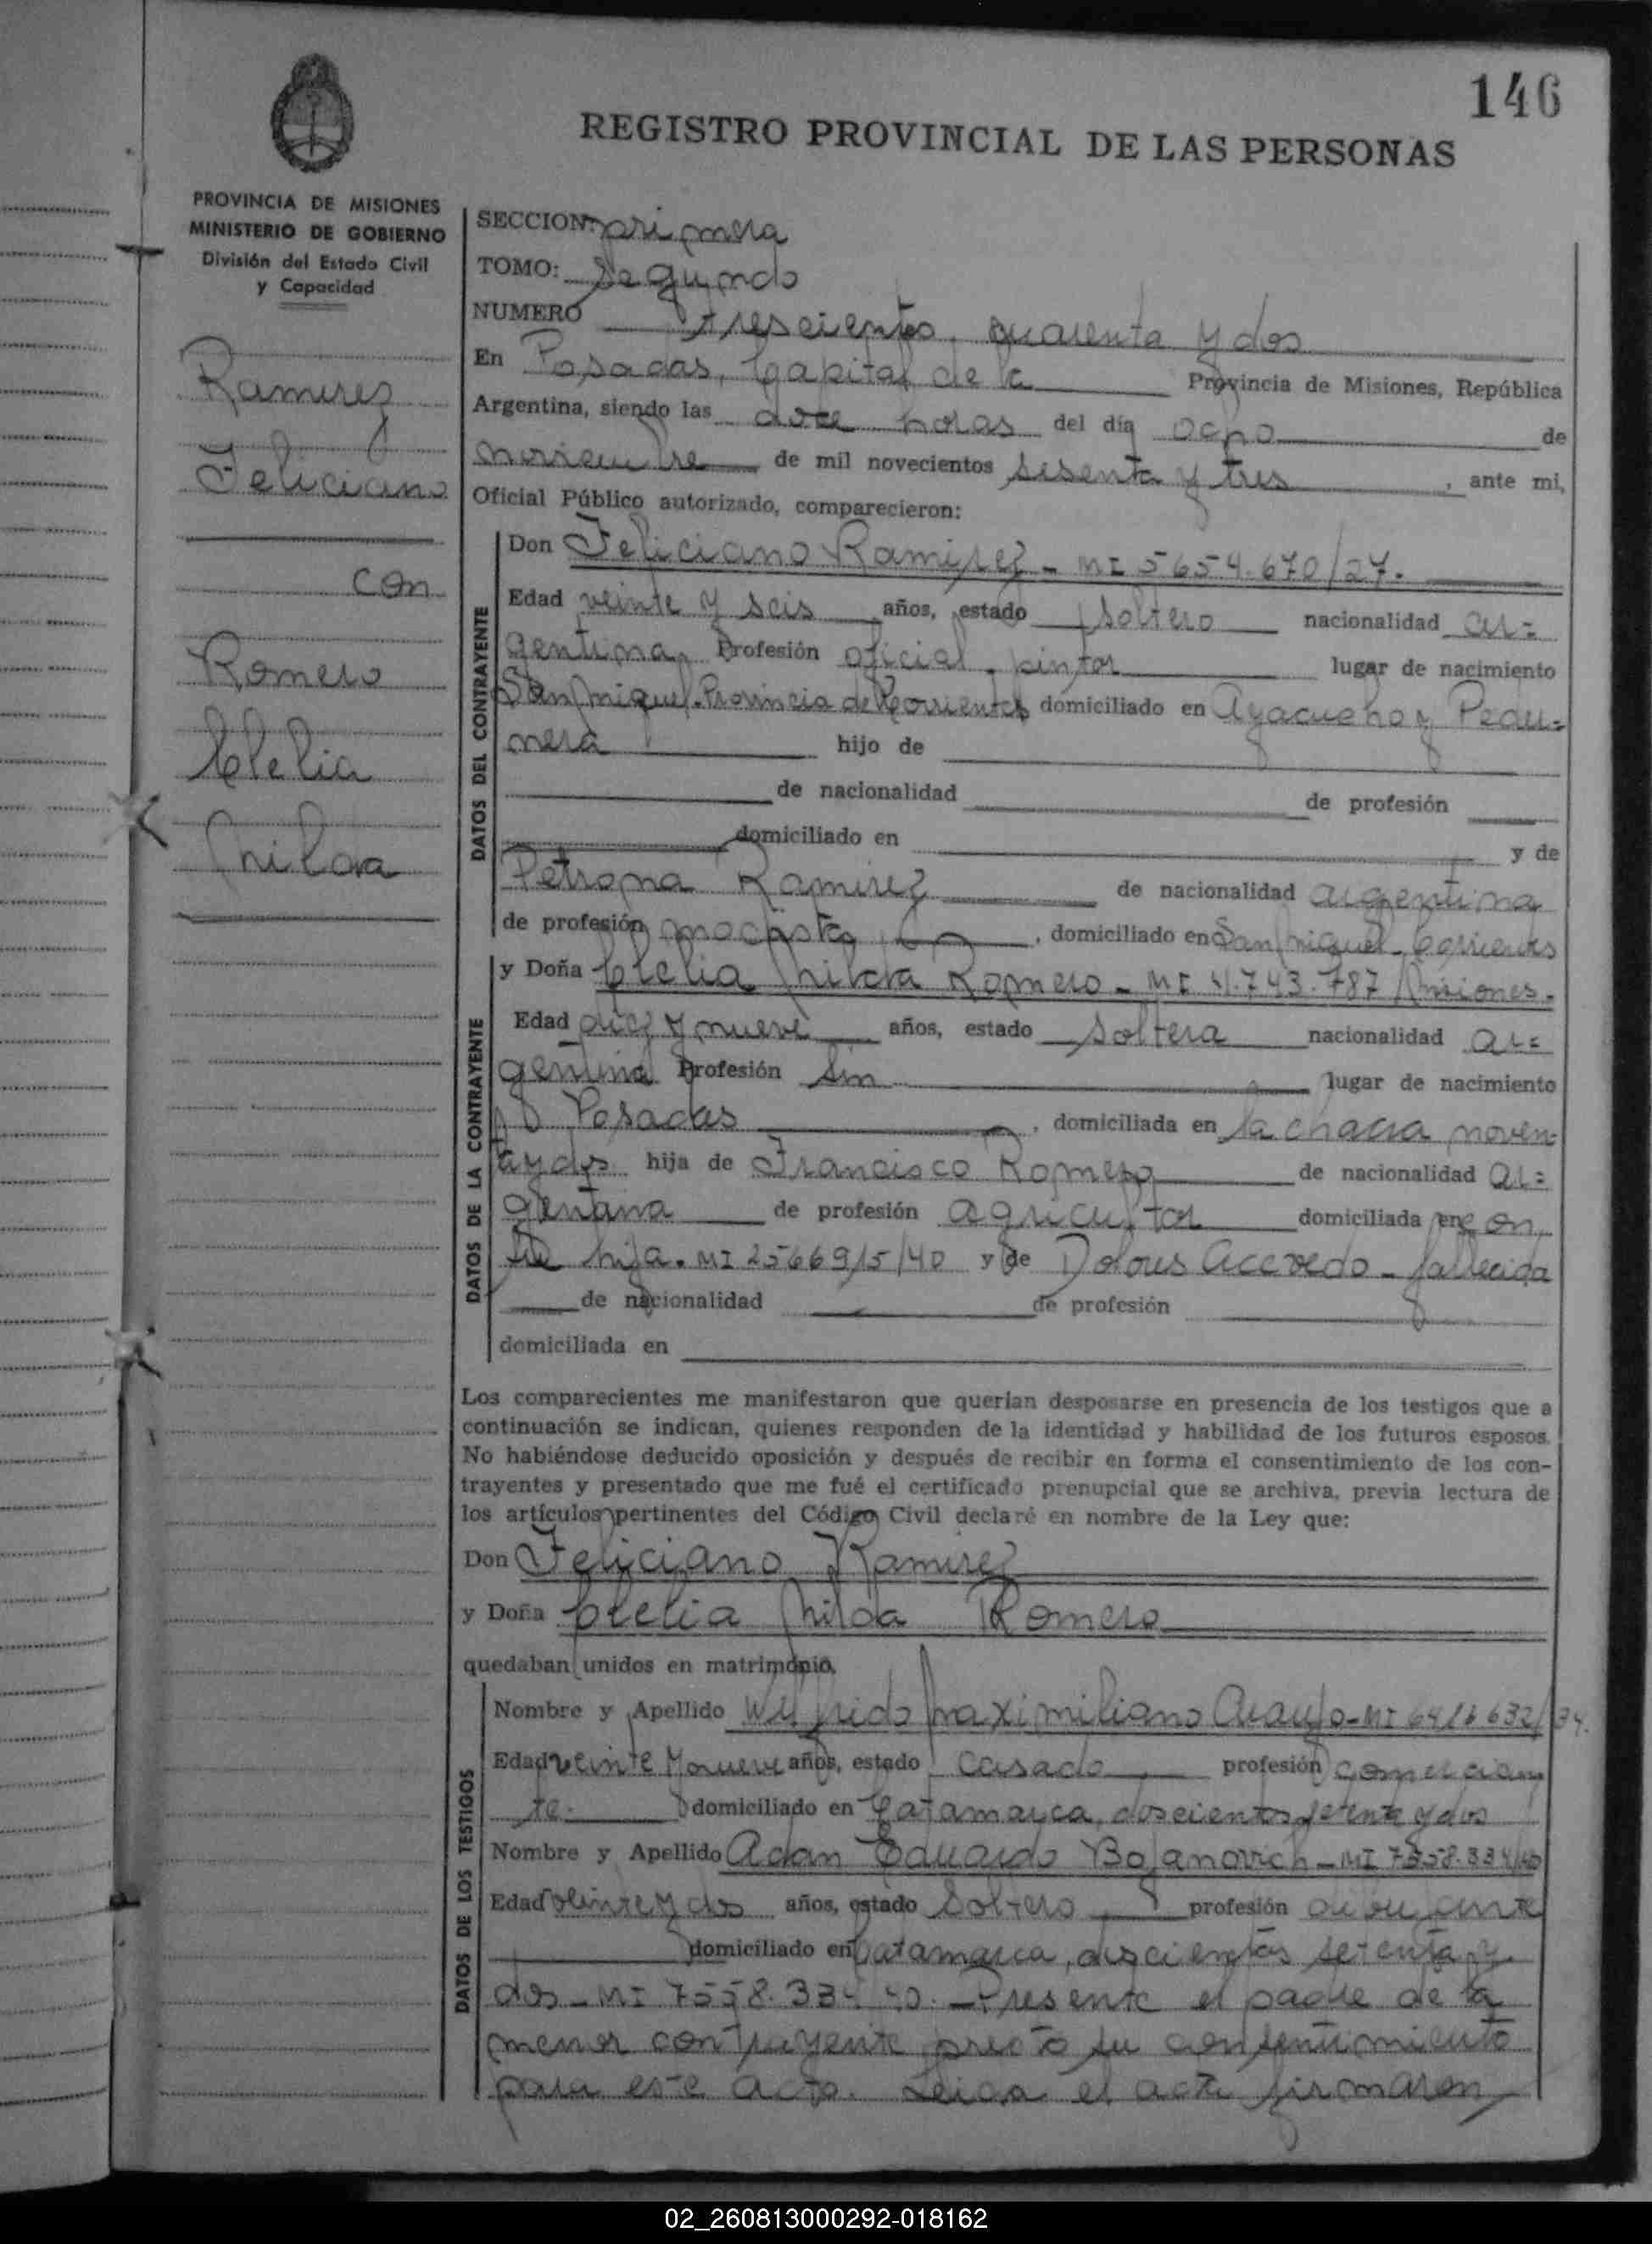 146
REGISTRO PROVINCIAL DE LAS PERSONAS
PROVINCIA DE MISIONES
MINISTERIO DE GOBIERNO
División del Estado Civil
y Capacidad
Ramirez
Feliciano
con
Romero
Clelia
Hilda
SECCION: primera
TOMO: Segundo
NUMERO trescientos cuarenta y dos
En Posadas, Capital de la Provincia de Misiones, República
Argentina, siendo las doce horas del día ocho de
noviembre de mil novecientos sesenta y tres, ante mi,
Oficial Público autorizado, comparecieron:
DATOS DEL CONTRAYENTE
Don Feliciano Ramirez - MI 5654.670/27.
Edad veinte y seis años, estado soltero nacionalidad ar=
gentina, Profesión oficial pintor lugar de nacimiento
San Miguel. Provincia de Corrientes domiciliado en Ayacucho y Peder=
nera hijo de
de nacionalidad de profesión
domiciliado en y de
Petrona Ramirez de nacionalidad argentina
de profesión, domiciliado en San Miguel Corrientes
DATOS DE LA CONTRAYENTE
y Doña Clelia Hilda Romero - MI 4.743.787 Misiones.
Edad diez y nueve años, estado soltera nacionalidad ar=
gentina Profesión sin lugar de nacimiento
Posadas, domiciliada en la chacra noven-
ta y dos hija de Francisco Romero de nacionalidad ar=
gentina de profesión agricultor domiciliada en con
su hija. MI 2566915/40 y de Dolores Acevedo - fallecida
de nacionalidad de profesión
domiciliada en
Los comparecientes me manifestaron que querían desposarse en presencia de los testigos que a
continuación se indican, quienes responden de la identidad y habilidad de los futuros esposos.
No habiéndose deducido oposición y después de recibir en forma el consentimiento de los con-
trayentes y presentado que me fué el certificado prenupcial que se archiva, previa lectura de
los artículos pertinentes del Código Civil declaré en nombre de la Ley que:
Don Feliciano Ramirez
y Doña Clelia Hilda Romero
quedaban unidos en matrimonio.
DATOS DE LOS TESTIGOS
Nombre y Apellido Wilfrido Maximiliano Araujo - MI 6416632/34.
Edad veinte y nueve años, estado casado, profesión comercian
te. domiciliado en Catamarca, doscientos setenta y dos
Nombre y Apellido Adan Eduardo Bojanovich - MI 7558.334/40
Edad veinte y dos años, estado soltero, profesión dibujante
domiciliado en Catamarca, doscientos setenta y
dos - MI 7558.334/40. - Presente el padre de la
menor contrayente prestó su consentimiento
para este acto. Leida el acta firmaron
02_260813000292-018162